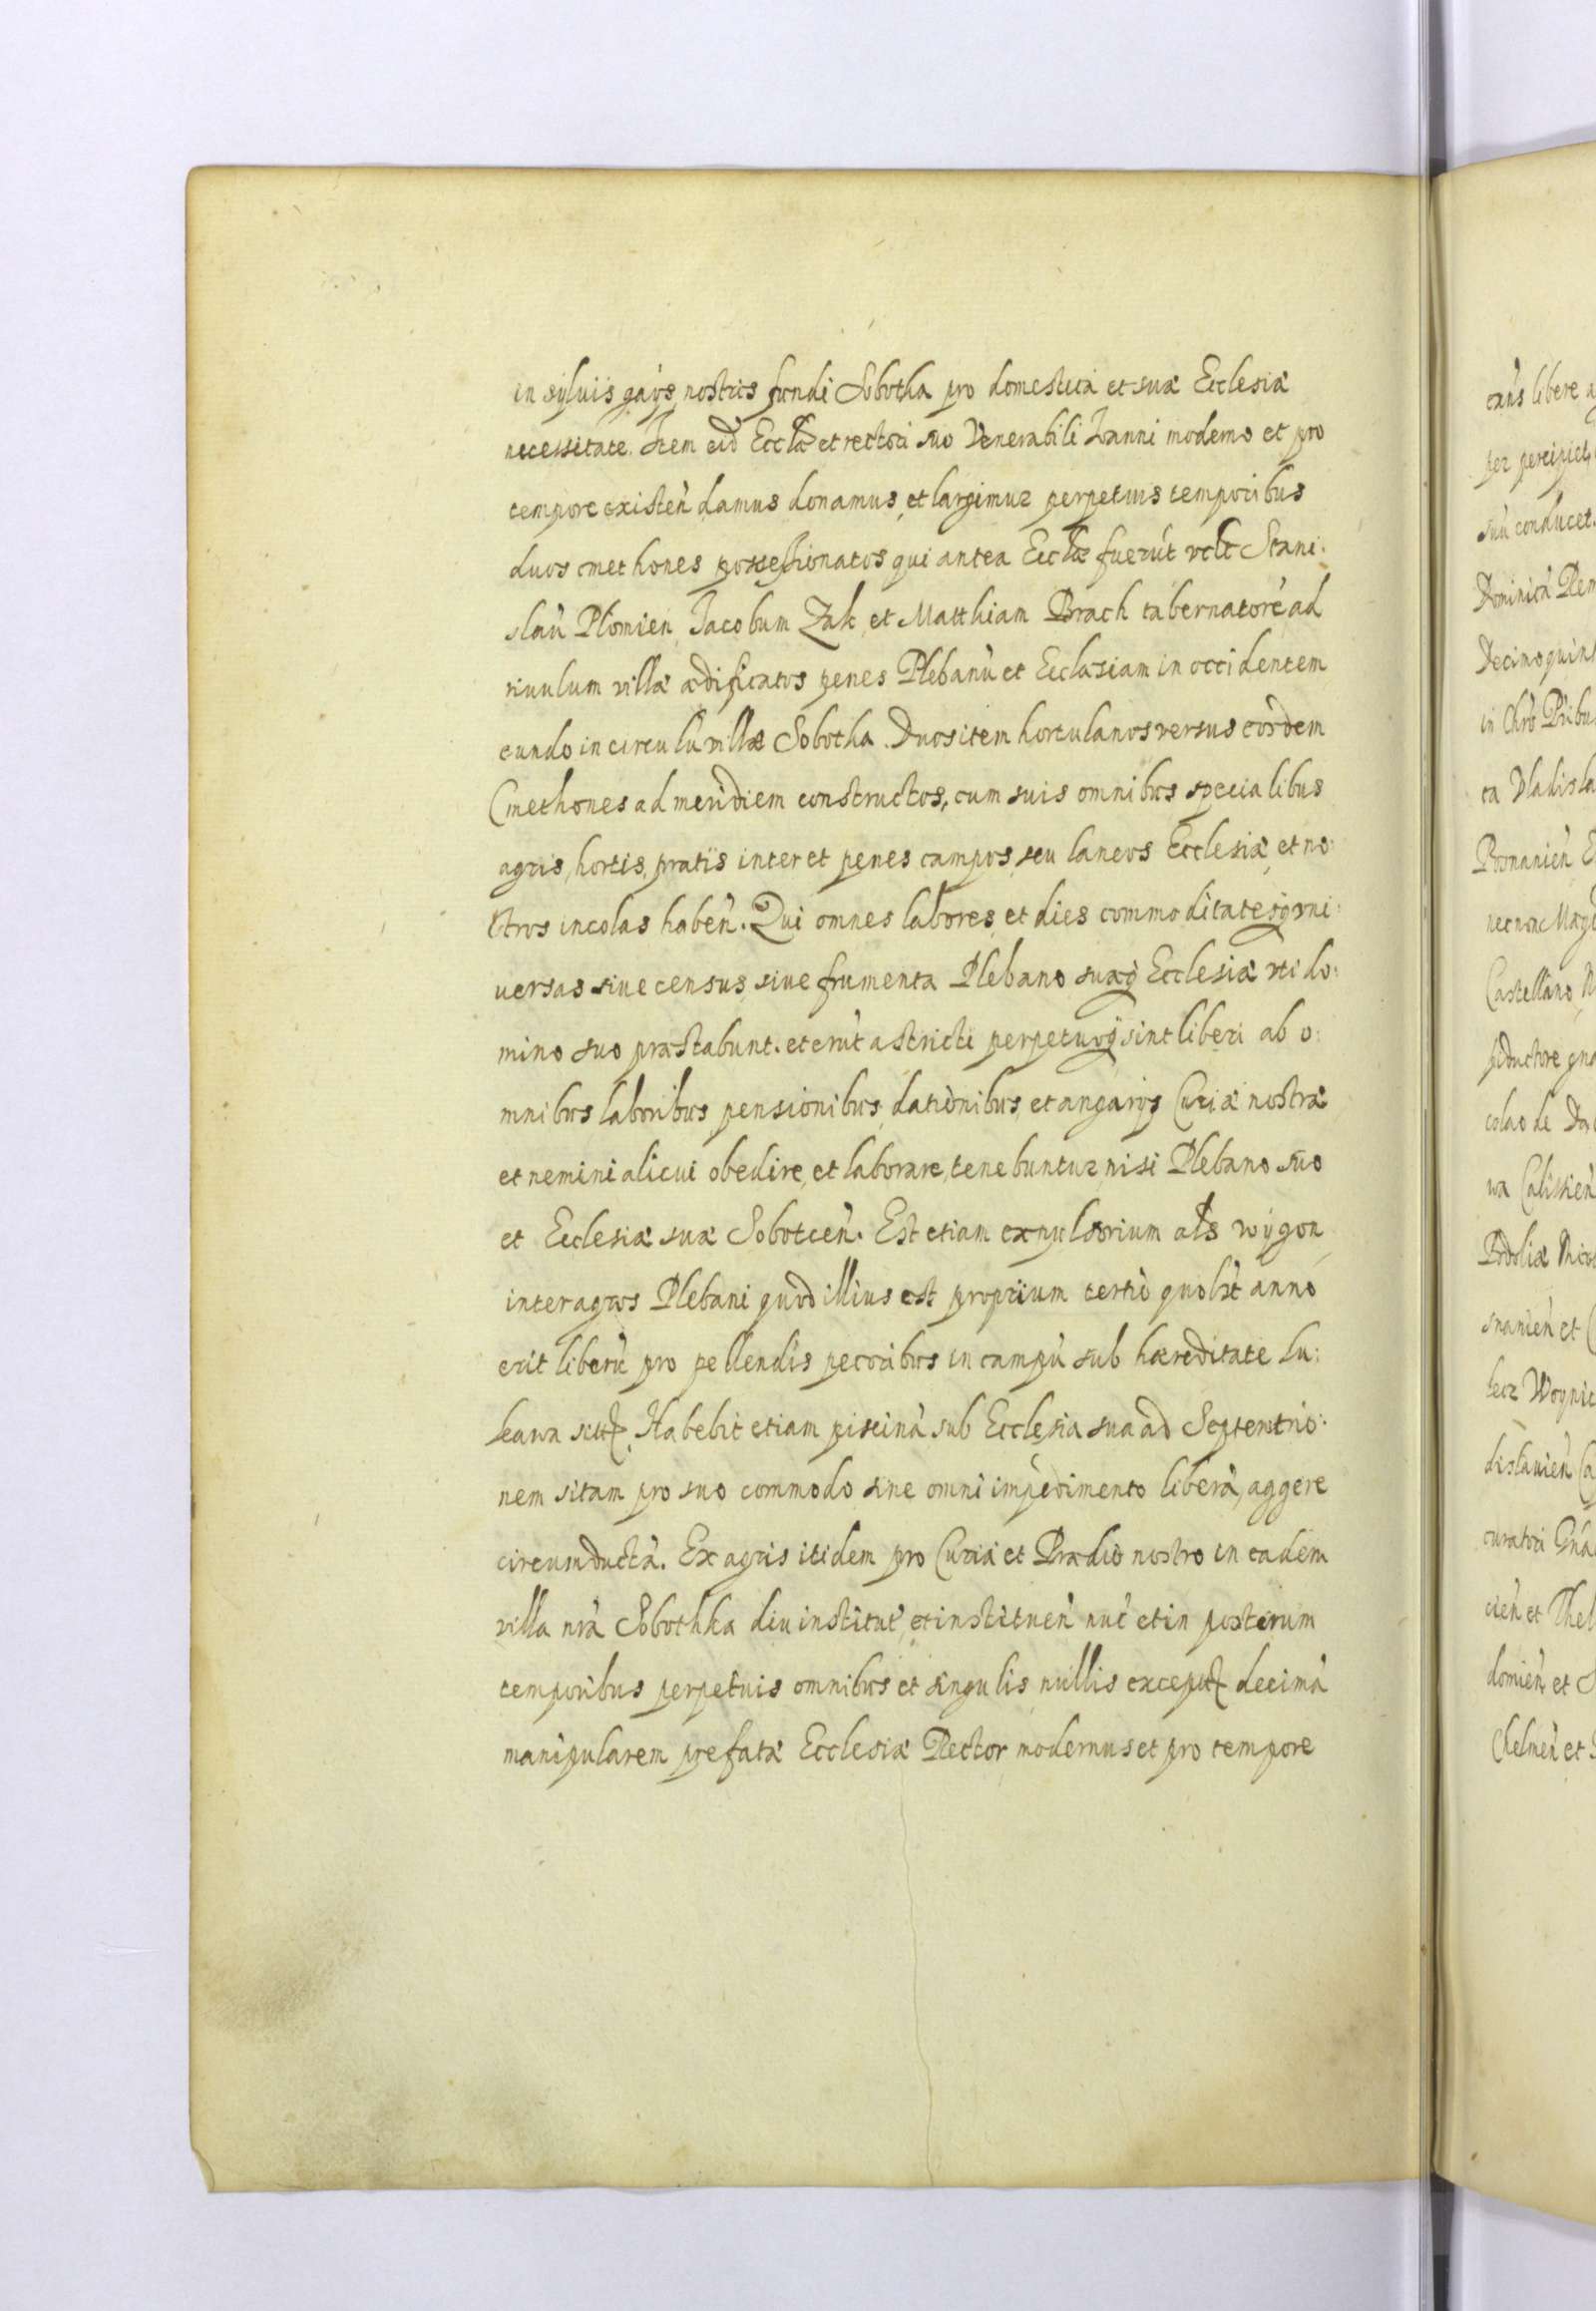 in sÿluis gaÿs nostris fundi Sobotha pro domestica et suæ Ecclesiæ
necessitate. Item eid Eccłæ et rectori suo Venerabili Ioanni moderno et pro
tempore existeǹ damus donamus, et largimur perpetuis temporibus
duos cmethones possessionatos qui antea Eccłæ fuerùt vełt Stani:
slaù Płomien, Jacobum Zak, et Matthiam Brach tabernatorè ad
riuulum villæ ædificatos penes Plebanù et Ecclesiam in occidentem
eundo in circulù villæ Sobotha. Duos item hortulanos versus eosdem
Cmethones ad meridiem constructos, cum suis omnibus specialibus
agris, hortis, pratis inter et penes campos, seu laneos Ecclesiæ, et no:
stros incolas habeǹ. Qui omnes labores, et dies commoditatesq̀ vni:
uersas siue census, siue frumenta Plebano suæq̀ Ecclesiæ vti do:
mino suo præstabunt. et erùt astricti perpetuoq̀ sint liberi ab o:
mnibus laboribus, pensionibus, dationibus, et angarÿs Curiæ nostræ
et nemini alicui obedire, et laborare, tenebuntur, nisi Plebano suo
et Ecclesiæ suæ Sobotceǹ. Est etiam expulsorium ałs wÿgon
inter agros Plebani quod illius est proprium tertiò quolìt anno
erit liberù pro pellendis pecoribus in campù sub hæreditate Lu:
Habebit etiam piscinà sub Ecclesia sua ad Septemtrio:
nem sitam pro suo commodo sine omni impedimento liberà, aggere
circumductà. Ex agris itidem pro Curia et Prædio nostro in eadem
villa nrà Sobothka diu institut, et instituen̄ nuc et in posterum
temporibus perpetuis omnibus et singulis nullis decimà
manipularem prefatæ Ecclesiæ Rector modernus et pro tempore
exn̄s libere
per percipiet,
suù conducet.
Dominica
Decimoquin
in
ca Vladisla
Posnanieǹ
necnon
Castellano

colao de
wa Calissieǹ
Podoliæ
snanieǹ et
becz Woynic
dislauieǹ
curatori
cieǹ et
domieǹ et
Chelmeǹ et